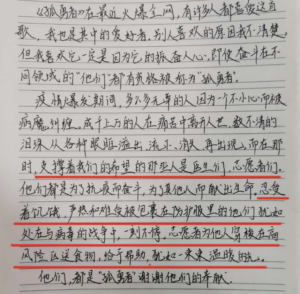 《孤勇者》在最近火爆全网,有许多人都喜欢这首
歌,我也是其中的爱好者,别人喜欢的原因我不清楚,
但我喜欢它一定是因为它的振奋人心,即使奋斗在不
同领域的"他们"都有资格被称为"孤勇者"。
疫情爆发期间,多少多无辜的人因为一个不小心而被
病魔纠缠。成千上万的人在痛苦中离开人世,数不清的
泪珠从各种眼眶溢出、流下、消失、再出现。而在那
时,支撑着我们的希望的那些人是医生们,志愿者们。
他们都是为了抗疫而奋斗,为了他人而献出生命,忍受
着饥饿、严热和难受被包裹在防护服里的他们,犹如
处在与病毒的战争中,一刻不停。志愿者为他人穿梭在高
风险区送食物,给予帮助,犹如一束束温暖的光。
他们,都是"孤勇者"谢谢他们的奉献。